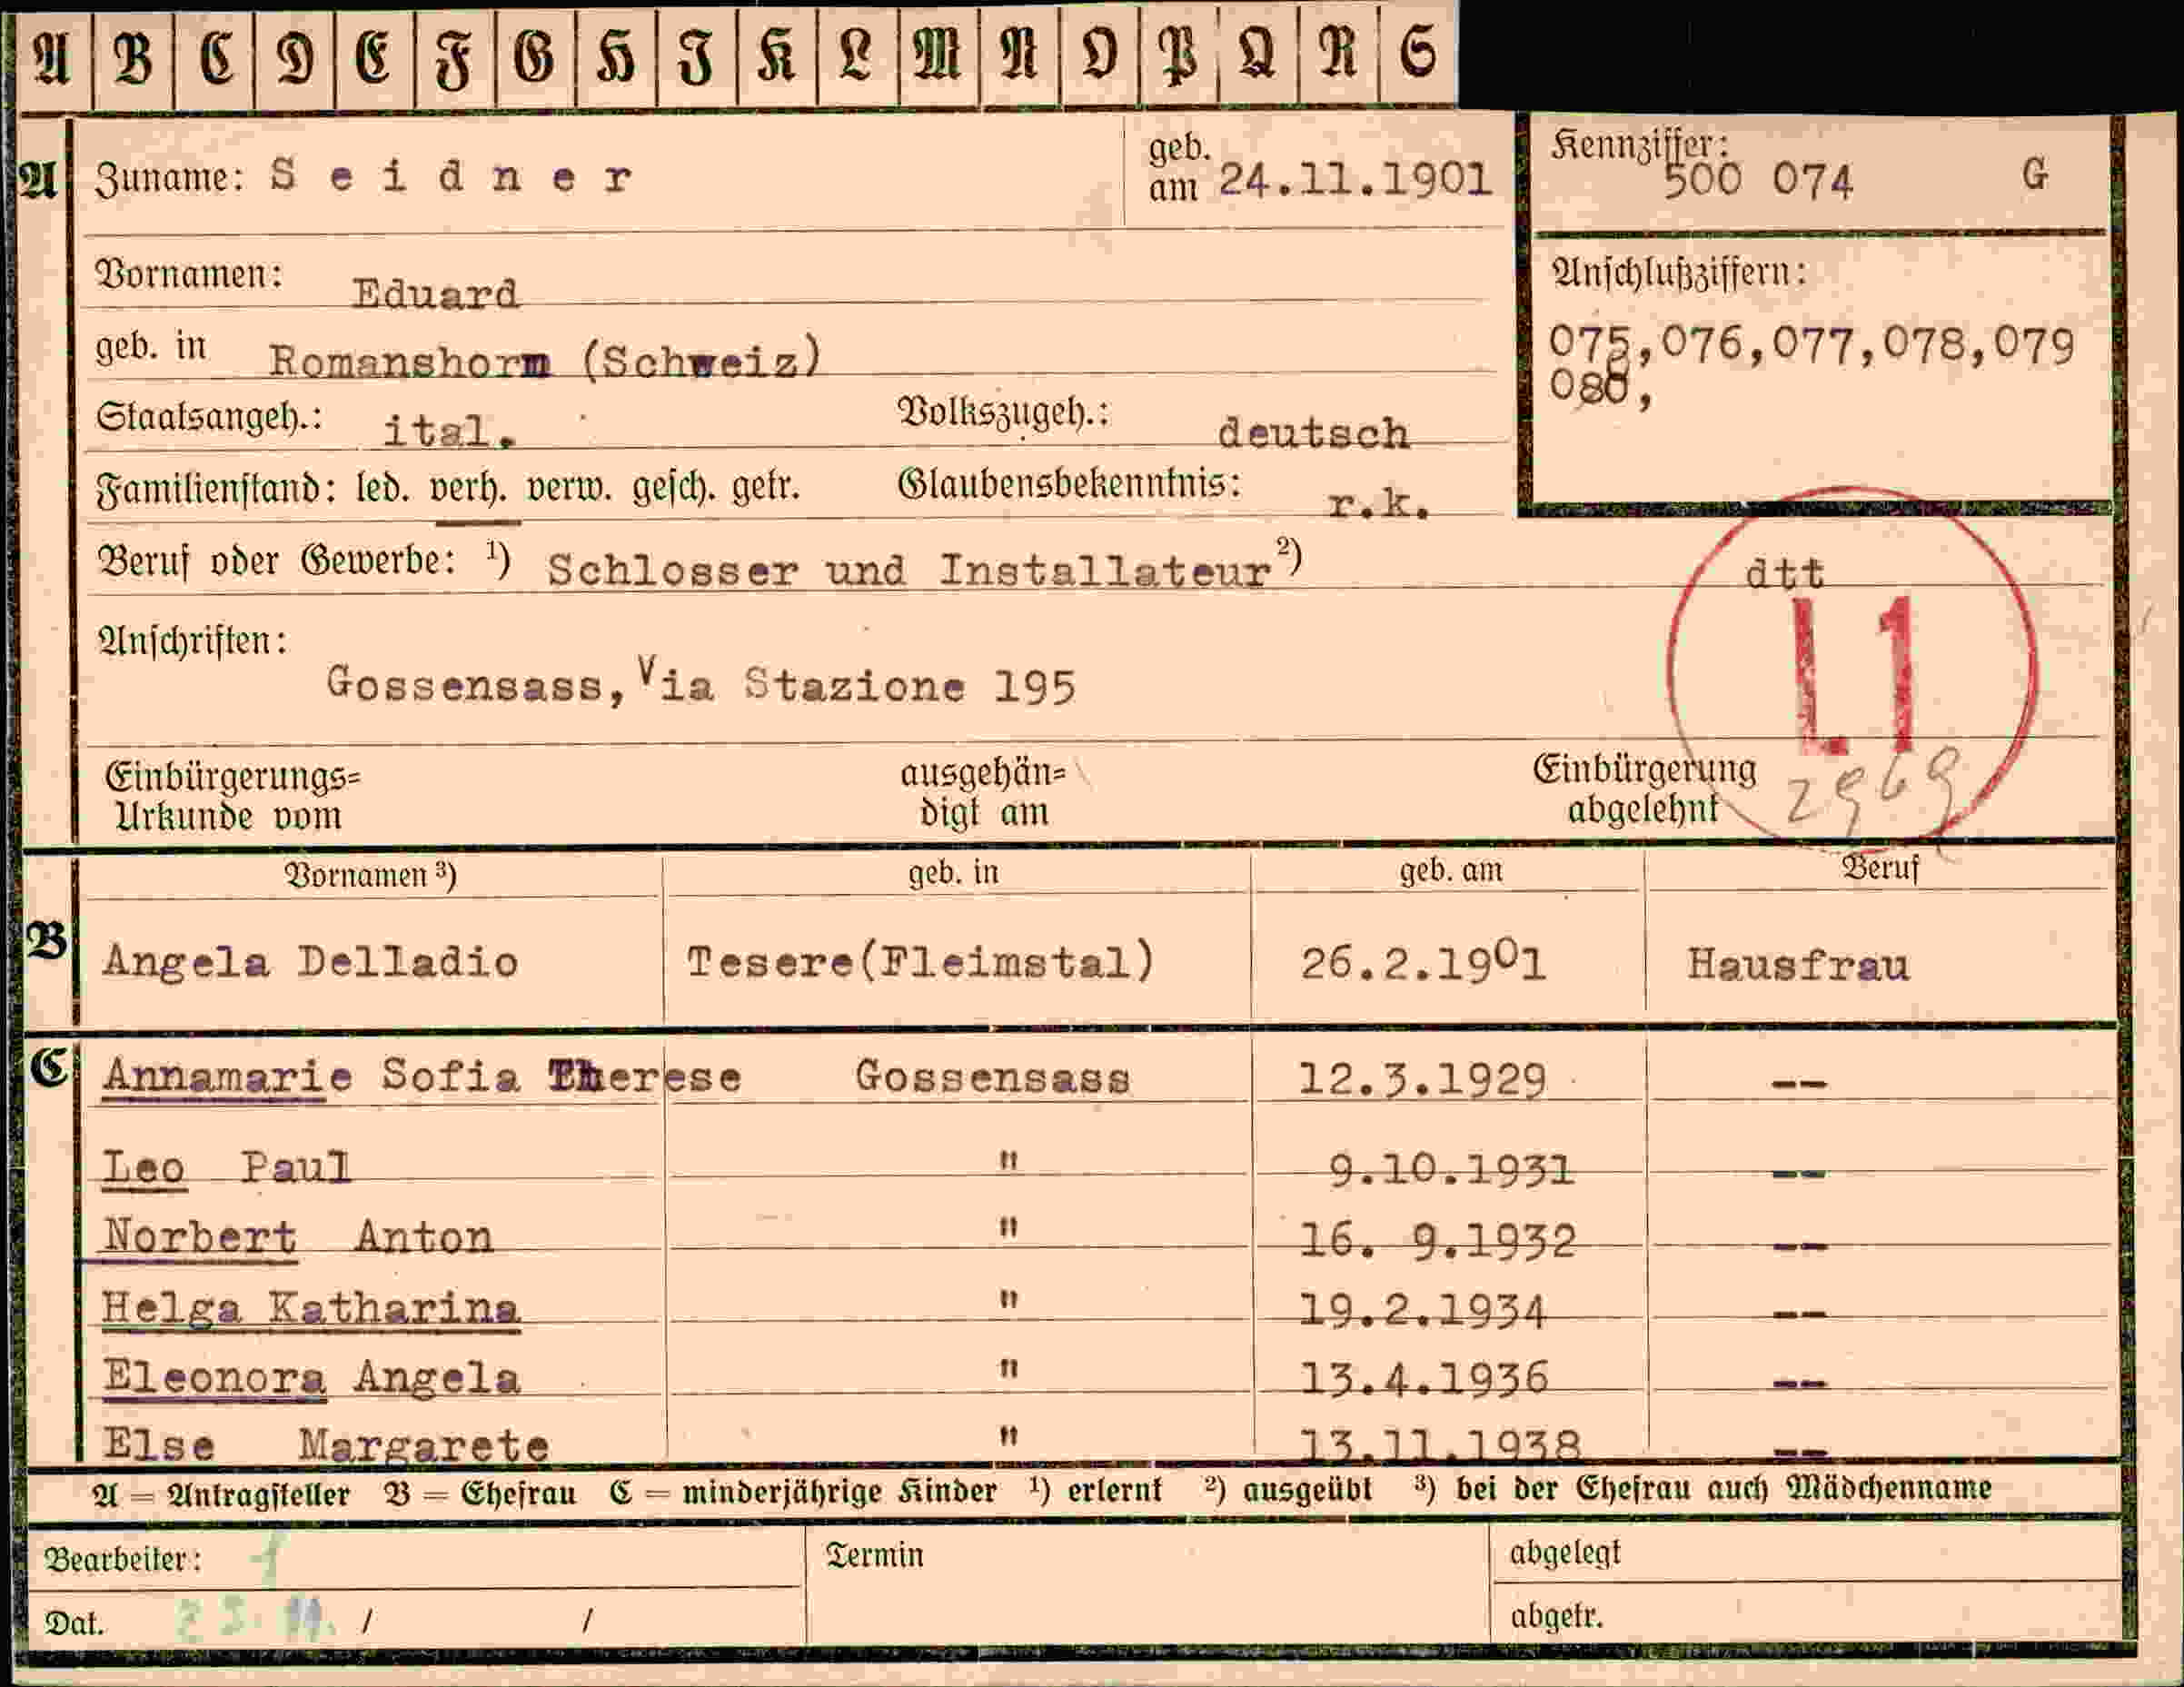 A B C D E F G H I K L M N O P Q R S
A Zuname: S e i d n e r geb. am 24.11.1901 Kennziffer: 500 074 G
Vornamen: Eduard
Anschlußziffern:
geb. in Romanshorm (Schweiz) 075,076,077,078,079
080,
Staatsangeh.: ital. Volkszugeh.: deutsch
Familienstand: led. verh. verw. gesch. getr. Glaubensbekenntnis: r.k.
Beruf oder Gewerbe: ¹) Schlosser und Installateur ²) dtt
L1
Anschriften:
Gossensass, Via Stazione 195
Einbürgerungs= ausgehän= Einbürgerung
Urkunde vom digt am abgelehnt 2969
Vornamen ³) geb. in geb. am Beruf
B Angela Delladio Tesere(Fleimstal) 26.2.1901 Hausfrau
C Annamarie Sofia Therese Gossensass 12.3.1929 --
Leo Paul " 9.10.1931 --
Norbert Anton " 16. 9.1932 --
Helga Katharina " 19.2.1934 --
Eleonora Angela " 13.4.1936 --
Else Margarete " 13.11.1938 --
A = Antragsteller B = Ehefrau C = minderjährige Kinder ¹) erlernt ²) ausgeübt ³) bei der Ehefrau auch Mädchenname
Bearbeiter: Termin abgelegt
Dat. / / abgetr.